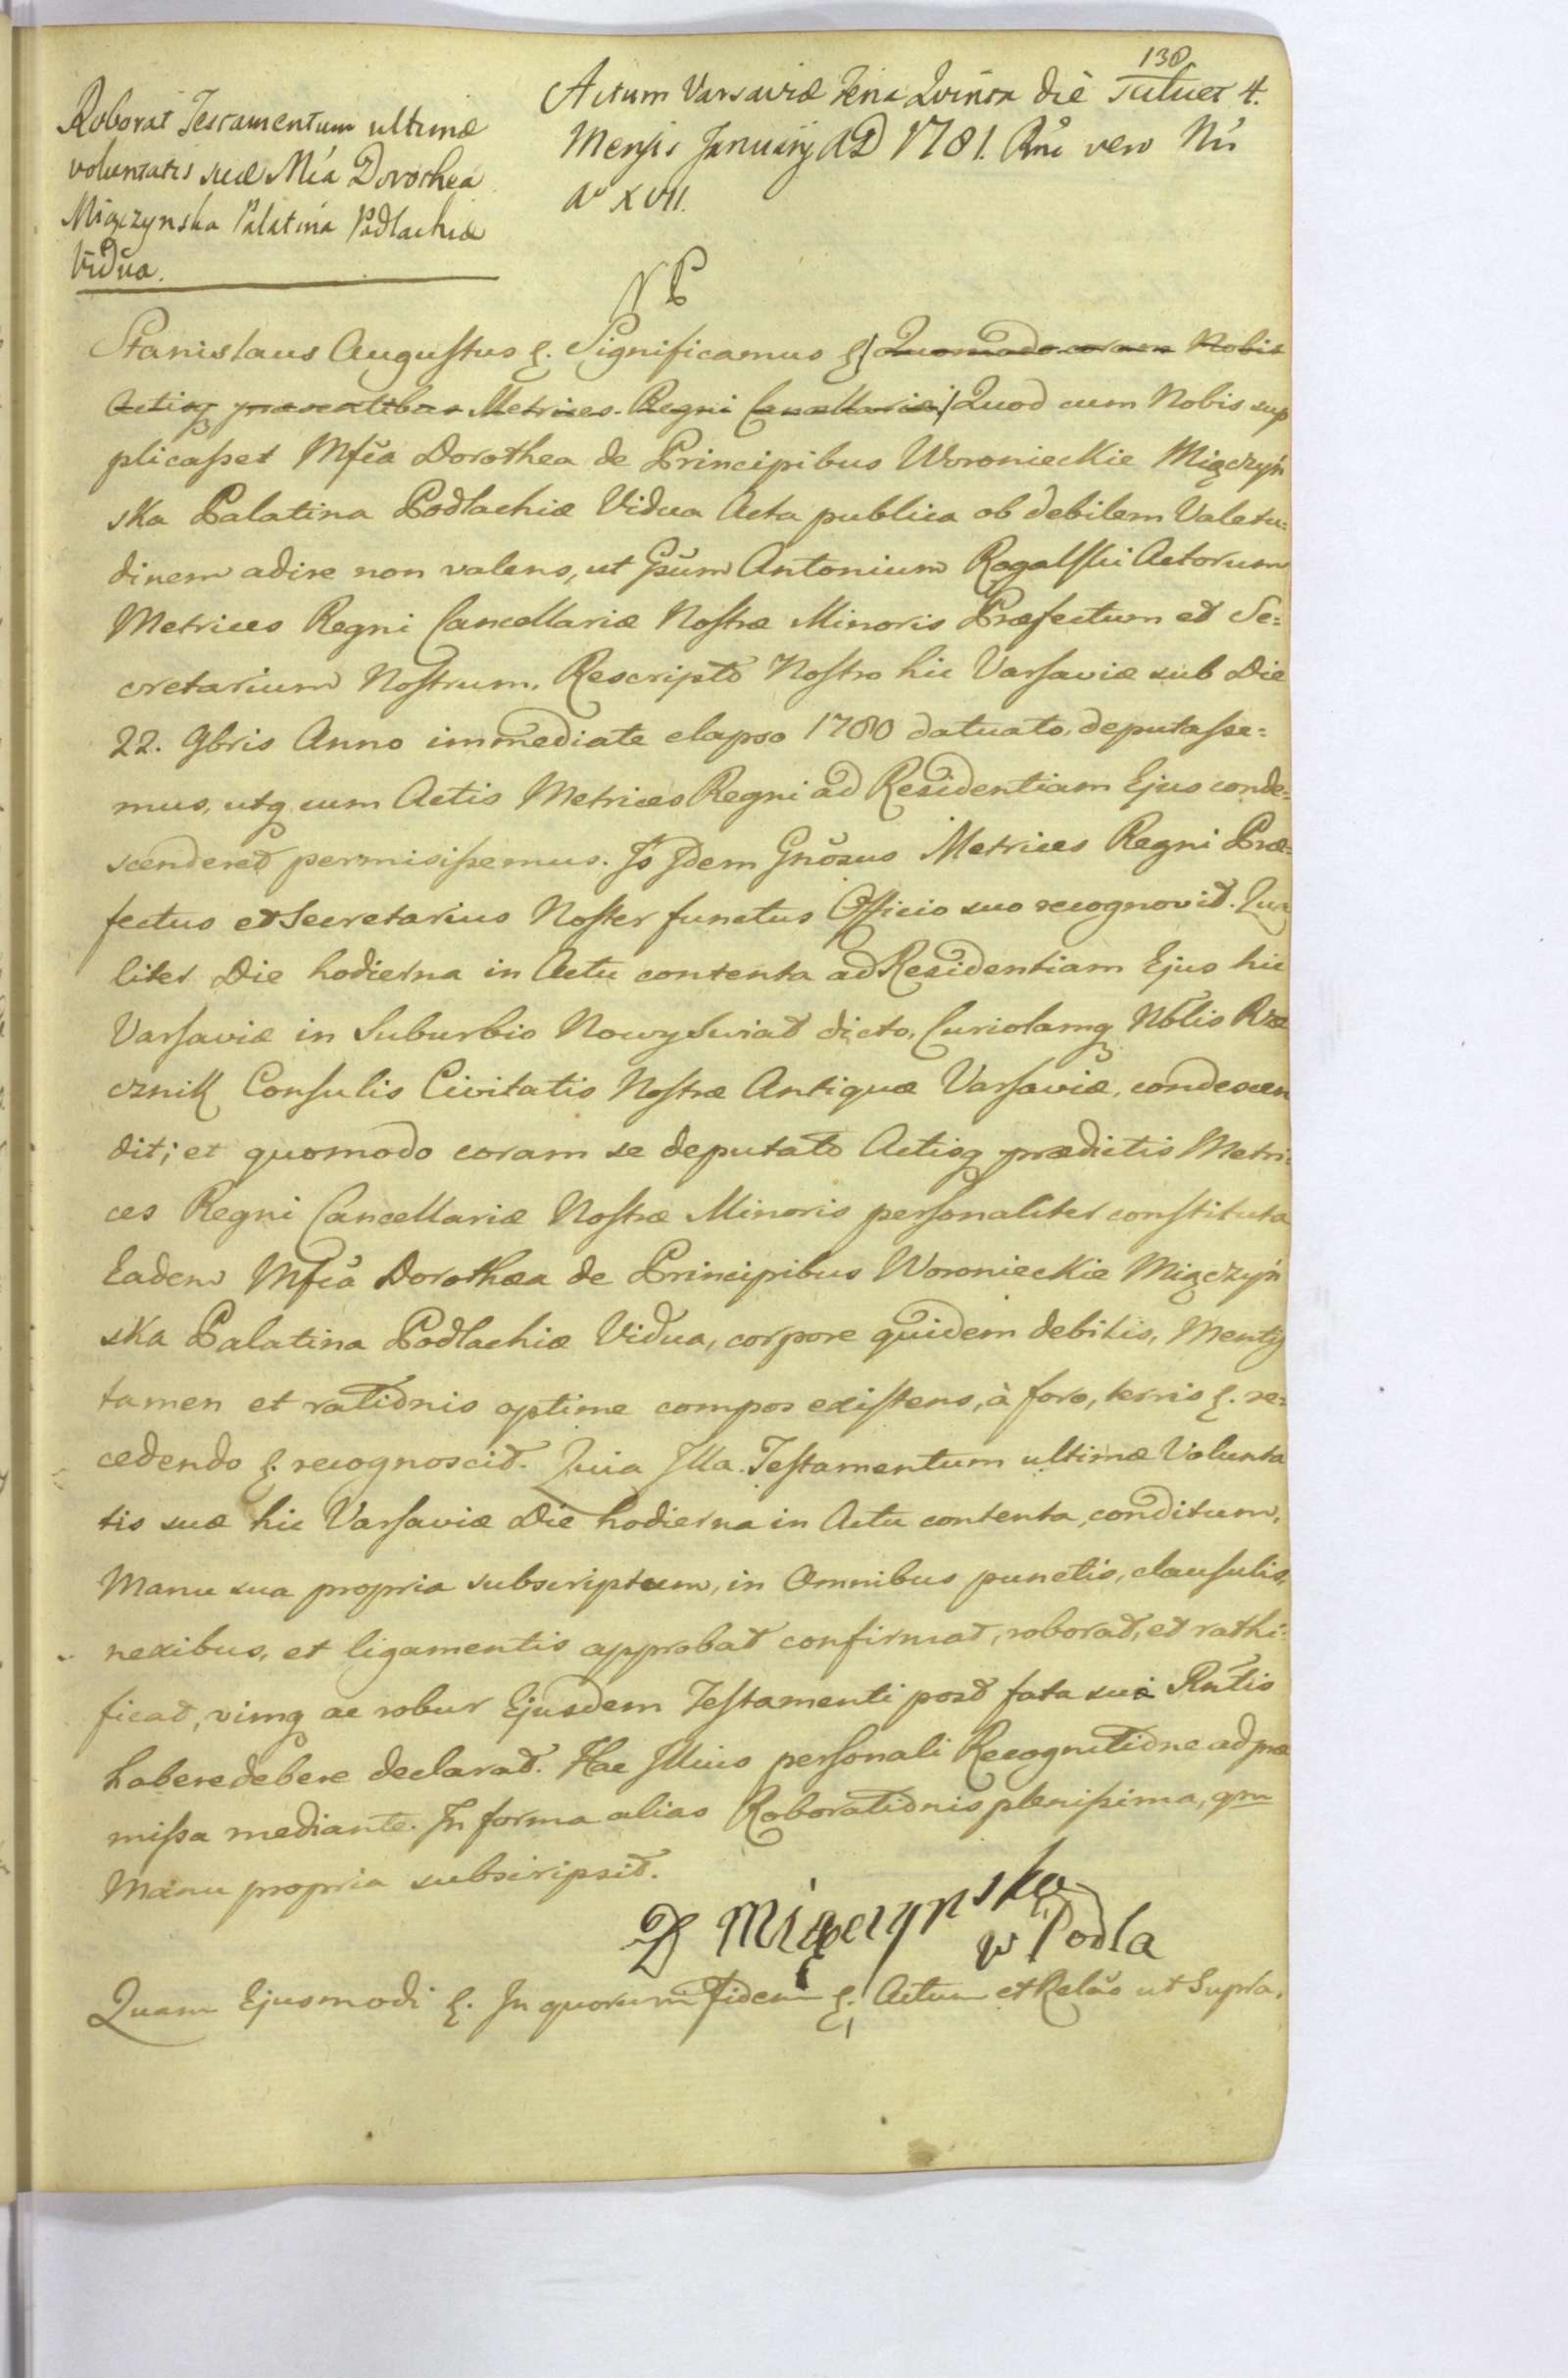 138
Roborat Testamentum ultimæ
voluntatis suæ Mía Dorothea
Miączynska Palatina Podlachiæ
Vidua.
Actum Varsaviæ Feria Quinta die scilicet 4.
Mensis Januarij AD 1781. Rńi vero Nri
Aº XVII.
Stanislaus Augustus &. Significamus & Quomodo coram Nobis
Actisq præsentibus Metrices Regni Cancellariæ Quod cum Nobis sup
plicasset Mfića Dorothea de Principibus Woronieckie Miączyń
ska Palatina Podlachiæ Vidua Acta publica ob debilem Valetu:
dinem adire non valens, ut Gsum Antonium Rogalski Actorum
Metrices Regni Cancellariæ Nostræ Minoris Præfectum et Se:
cretarium Nostrum, Rescripto Nostro hic Varsaviæ sub Die
22. 9bris Anno immediate elapso 1780 datuato, deputasse:
mus, utq cum Actis Metrices Regni ad Residentiam Ejus conde:
scenderet permisissemus. Is Idem Gnosus Metrices Regni Præ:
fectus et Secretarius Noster functus Officio suo recognovit. Qua
liter Die hodierna in Actu contenta ad Residentiam Ejus hic
Varsaviæ in Suburbio Nowy Swiat dicto, Curiolamq Nblis Rze
cznik Consulis Civitatis Nostræ Antiquæ Varsaviæ, condescen
dit; et quomodo coram se deputato Actisq prædictis Metri:
ces Regni Cancellariæ Nostræ Minoris personaliter constituta
Eadem Mfića Dorothea de Principibus Woronieckie Miączyń
ska Palatina Podlachiæ Vidua, corpore quidem debilis, Mentis
tamen et rationis optime compos existens, à foro, terris &. re:
cedendo &. recognoscit. Quia Illa Testamentum ultimæ Volunta
tis suæ hic Varsaviæ Die hodierna in Actu contenta, conditum,
Manu sua propria subscriptum, in Omnibus punctis, clausulis,
nexibus, et ligamentis approbat confirmat, roborat, et rathi:
ficat, vimq ac robur Ejusdem Testamenti post fata sui Rntis
habere debere declarat. Hac Illius personali Recognitione ad præ
missa mediante. In forma alias Roborationis plenissima, qm
Manu propria subscripsit.
D Miączynska
w Podla
Quam Ejusmodi &. In quorum Fidem &. Actum et Relaõ ut Supra.